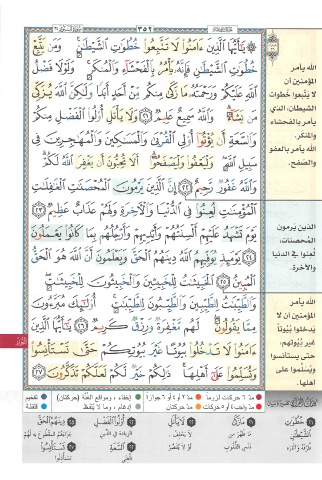 ٣٥٢
يَـٰٓأَيُّهَا ٱلَّذِينَ ءَامَنُوا۟ لَا تَتَّبِعُوا۟ خُطُوَٰتِ ٱلشَّيْطَـٰنِ ۚ وَمَن يَتَّبِعْ
خُطُوَٰتِ ٱلشَّيْطَـٰنِ فَإِنَّهُۥ يَأْمُرُ بِٱلْفَحْشَآءِ وَٱلْمُنكَرِ ۚ وَلَوْلَا فَضْلُ
ٱللَّهِ عَلَيْكُمْ وَرَحْمَتُهُۥ مَا زَكَىٰ مِنكُم مِّنْ أَحَدٍ أَبَدًا وَلَـٰكِنَّ ٱللَّهَ يُزَكِّى
مَن يَشَآءُ ۗ وَٱللَّهُ سَمِيعٌ عَلِيمٌ ٢١ وَلَا يَأْتَلِ أُو۟لُوا۟ ٱلْفَضْلِ مِنكُمْ
وَٱلسَّعَةِ أَن يُؤْتُوٓا۟ أُو۟لِى ٱلْقُرْبَىٰ وَٱلْمَسَـٰكِينَ وَٱلْمُهَـٰجِرِينَ فِى
سَبِيلِ ٱللَّهِ ۖ وَلْيَعْفُوا۟ وَلْيَصْفَحُوٓا۟ ۗ أَلَا تُحِبُّونَ أَن يَغْفِرَ ٱللَّهُ لَكُمْ ۗ
وَٱللَّهُ غَفُورٌ رَّحِيمٌ ٢٢ إِنَّ ٱلَّذِينَ يَرْمُونَ ٱلْمُحْصَنَـٰتِ ٱلْغَـٰفِلَـٰتِ
ٱلْمُؤْمِنَـٰتِ لُعِنُوا۟ فِى ٱلدُّنْيَا وَٱلْـَٔاخِرَةِ وَلَهُمْ عَذَابٌ عَظِيمٌ ٢٣
يَوْمَ تَشْهَدُ عَلَيْهِمْ أَلْسِنَتُهُمْ وَأَيْدِيهِمْ وَأَرْجُلُهُم بِمَا كَانُوا۟ يَعْمَلُونَ
٢٤ يَوْمَئِذٍ يُوَفِّيهِمُ ٱللَّهُ دِينَهُمُ ٱلْحَقَّ وَيَعْلَمُونَ أَنَّ ٱللَّهَ هُوَ ٱلْحَقُّ
ٱلْمُبِينُ ٢٥ ٱلْخَبِيثَـٰتُ لِلْخَبِيثِينَ وَٱلْخَبِيثُونَ لِلْخَبِيثَـٰتِ ۖ
وَٱلطَّيِّبَـٰتُ لِلطَّيِّبِينَ وَٱلطَّيِّبُونَ لِلطَّيِّبَـٰتِ ۚ أُو۟لَـٰٓئِكَ مُبَرَّءُونَ
مِمَّا يَقُولُونَ ۖ لَهُم مَّغْفِرَةٌ وَرِزْقٌ كَرِيمٌ ٢٦ يَـٰٓأَيُّهَا ٱلَّذِينَ
ءَامَنُوا۟ لَا تَدْخُلُوا۟ بُيُوتًا غَيْرَ بُيُوتِكُمْ حَتَّىٰ تَسْتَأْنِسُوا۟
وَتُسَلِّمُوا۟ عَلَىٰٓ أَهْلِهَا ۚ ذَٰلِكُمْ خَيْرٌ لَّكُمْ لَعَلَّكُمْ تَذَكَّرُونَ ٢٧
الله يأمر
المؤمنين أن
لا يتبعوا خطوات
الشيطان، الذي
يأمر بالفحشاء
والمنكر.
الله يأمر بالعفو
والصفح.
الذين يرمون
المحصنات،
لعنوا في الدنيا
والآخرة.
الله يأمر
المؤمنين أن لا
يدخلوا بيوتا
غير بيوتهم،
حتى يستأنسوا
ويسلموا على
أهلها.
مد ٦ حركات لزوما
مد ٢ أو ٤ أو ٦ جوازا
إخفاء، ومواقع الغنة (حركتان)
تفخيم
مد واجب ٤ أو ٥ حركات
مد حركتان
إدغام، وما لا يلفظ
قلقلة